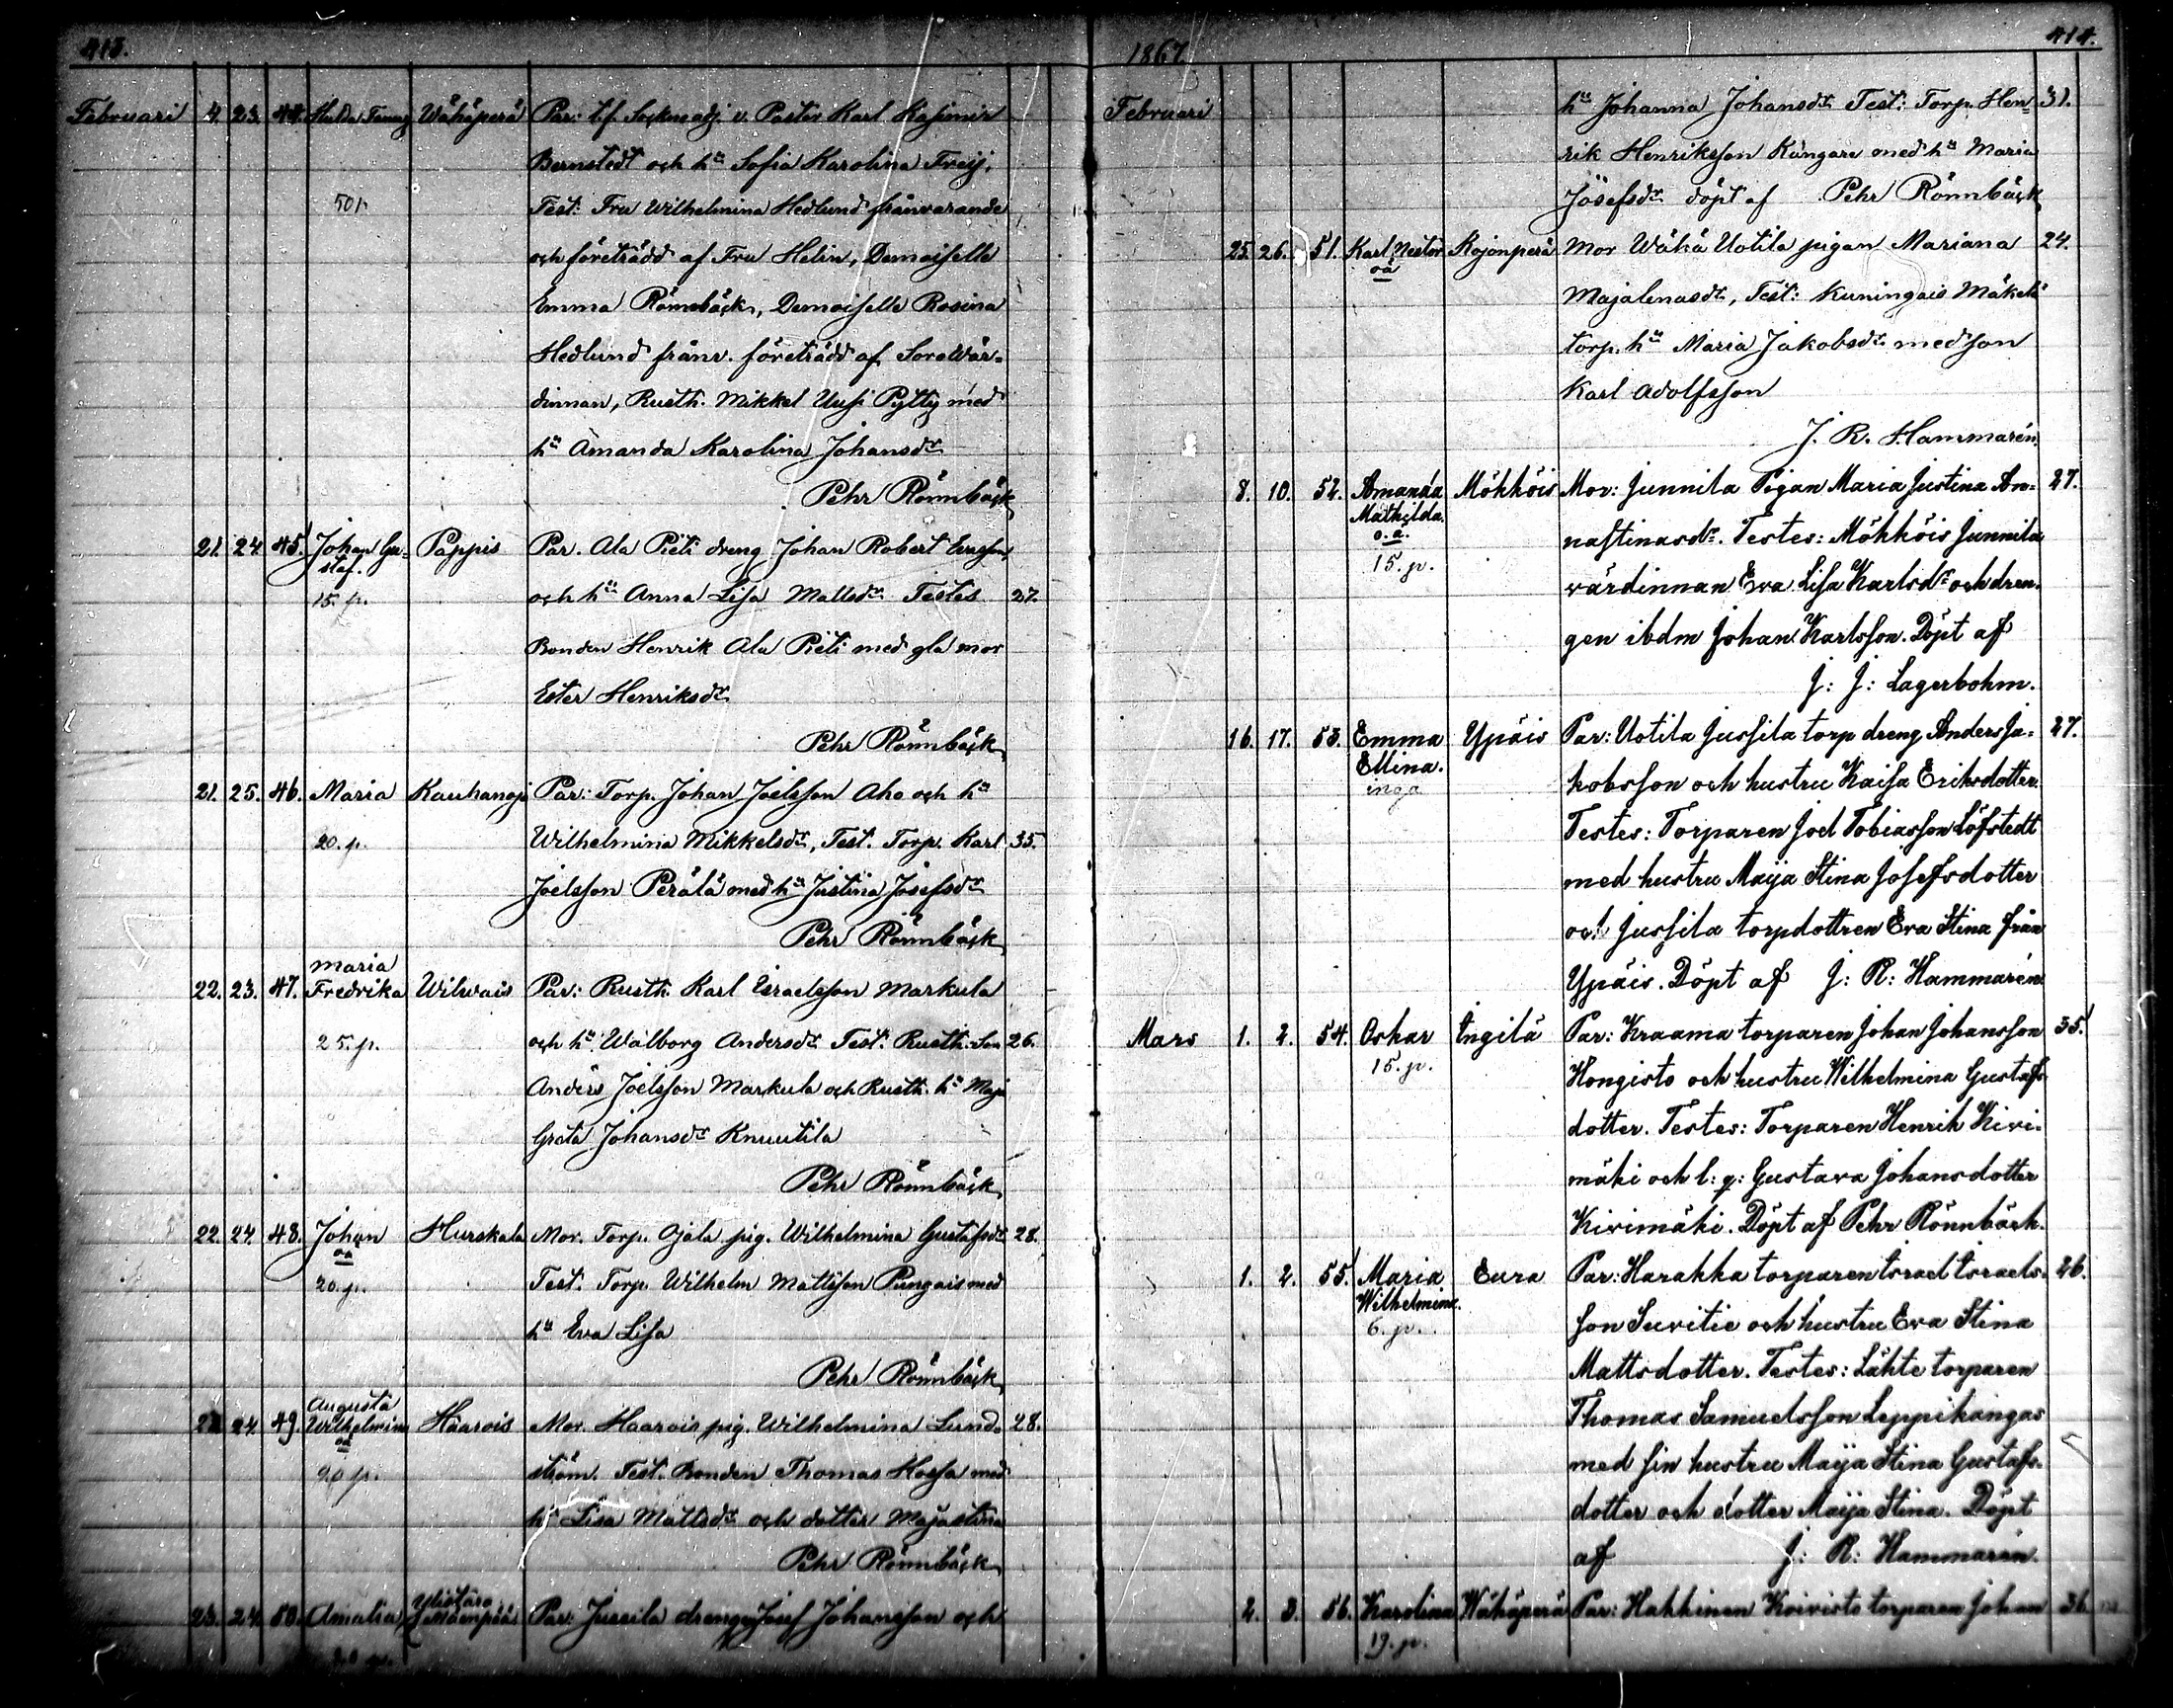 413.
Februari 4. 23. 44. Hulda Fanny Wähäperä Par: t.f. Socknadj. v. Pastor Karl Kasimir
Bernstedt och hu Sofia Karolina Freij.
50 p. Test: Fru Wilhelmina Hedlund frånvarande
och företrädd af Fru Helin, Demoiselle
Emma Rönnbäck, Demoiselle Rosina
Hedlund frånv. företrädd af Sorawär-
dinnan, Rusth. Mikkel Uusi Pytty med
hu Amanda Karolina Johansdr
Pehr Rönnbäck
21. 24. 45. Johan Gu- Pappis Par. Ala Pieti dreng Johan Robert
staf.
15. p. och hu Anna Lisa Mattsdr Testes 27.
Bonden Henrik Ala Pieti med gla mor
Ester Henriksdr
Pehr Rönnbäck
21. 25. 46. Maria Kauhanoja Par: Torp. Johan Joelsson Aho och hu
20. p. Wilhelmina Mikkelsdr, Test. Torp. Karl 35.
Joelsson Perälä med hu Justina Josefsdr
Pehr Rönnbäck
Maria
22. 23. 47. Fredrika Wilwais Par: Rusth. Karl Israelsson Markula
25. p. och hu Walborg Andersdr Test: Rusth. Son 26.
Anders Joelsson Markula och Rusth. hu Maja
Greta Johansdr Knuutila
Pehr Rönnbäck
22. 24. 48. Johan Hurskala Mor. Torp. Ojala pig. Wilhelmina Gustafsdr 28.
oä
20. p. Test. Torp. Wilhelm Mattsson Pungais med
hu Eva Lisa
Pehr Rönnbäck
Augusta
24. 49. Wilhelmina Haarois Mor. Haarois pig. Wilhelmina Lund- 28.
oä
20 p. ström. Test. Bonden Thomas Hossa med
hu Lisa Mattsdr och dotter Majastina
Pehr Rönnbäck
23. 24. 50. Amalia Par: Jussila dreng Josef Johansson och
1867. 414.
Februari hu Johanna Johansdr Test: Torp. Hen- 31.
rik Henriksson Kangare med hu Maria
Josefsdr döpt af Pehr Rönnbäck
25. 26. 51. Karl Nestor Kojonperä Mor Wähä Uotila pigan Mariana 24.
oä
Majalenasdr, Test: Kuningais Mäkelä
torp. hu Maria Jakobsdr med son
Karl Adolfsson
J. R. Hammarén.
8. 10. 52. Amanda Mökköis Mor: Junnila Pigan Maria Justina An- 27.
Mathilda.
o. ä. nastinasdr. Testes: Mökköis Junnila
15. p.
värdinnan Eva Lisa Karlsdr och dren-
gen ibdm Johan Karlsson. Döpt af
J: J: Lagerbohm.
16. 17. 53. Emma Ypäis Par: Uotila Jussila torp dreng Anders Ja- 27.
Ellina. kobsson och hustru Kaisa Eriksdotter.
inga
Testes: Torparen Joel Tobiasson Löfstedt
med hustru Maija Stina Josefsdotter
och Jussila torpdottren Eva Stina från
Ypäis. Döpt af J: R: Hammarén
Mars 1. 2. 54. Oskar Ingilä Par: Kraama torparen Johan Johansson 35.
15. p.
Hongisto och hustru Wilhelmina Gustafs-
dotter. Testes: Torparen Henrik Kivi-
mäki och l: q: Gustava Johansdotter
Kivimäki. Döpt af Pehr Rönnbäck.
1. 2. 55. Maria Eura Par: Harakka torparen Israel Israels- 26.
Wilhelmina.
6. p. son Suvitie och hustru Eva Stina
Mattsdotter. Testes: Lähte torparen
Thomas Samuelsson Leppikangas
med sin hustru Maija Stina Gustafs-
dotter och dotter Maija Stina. Döpt
af J: R: Hammarén.
2. 3. 56. Karolina Wähäperä Par: Hakkinen Koivisto torparen Johan 36.
19. p.